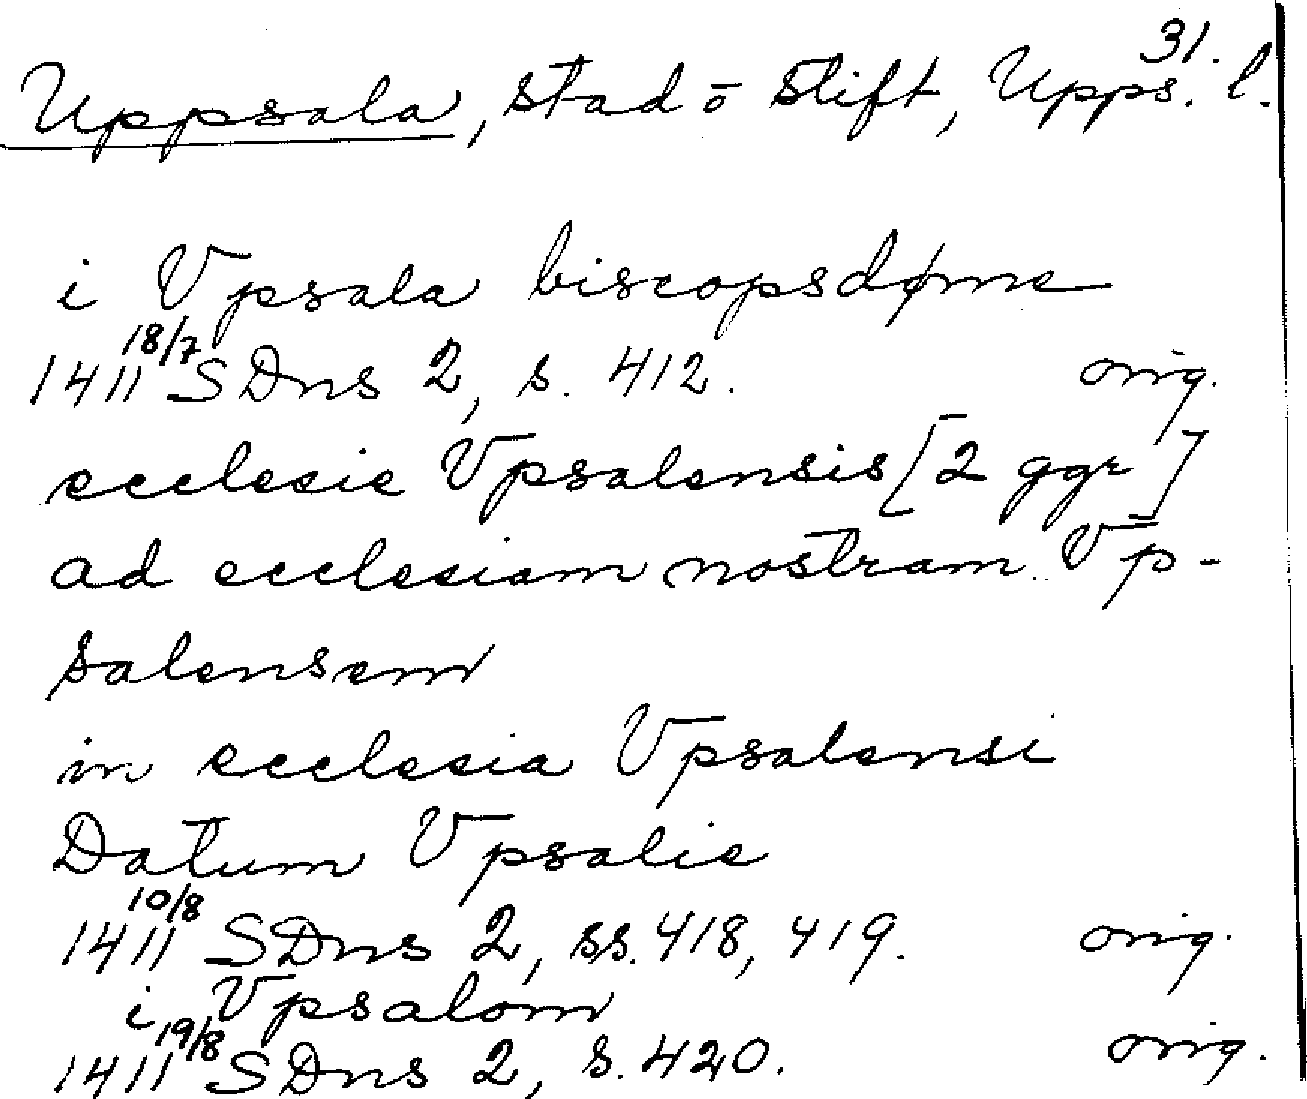 31.
Uppsala, stad o stift, Upps. l.
i Vpsala biscopsdøme
1411 18/7 SDns 2, s. 412. orig.
ecclesie Vpsalensis [2 ggr]
ad ecclesiam nostram Vp-
salensem
in ecclesia Vpsalensi
Datum Vpsalie
1411 10/8 SDns 2, ss. 418, 419. orig.
i Vpsalom
1411 19/8 SDns 2, s. 420. orig.